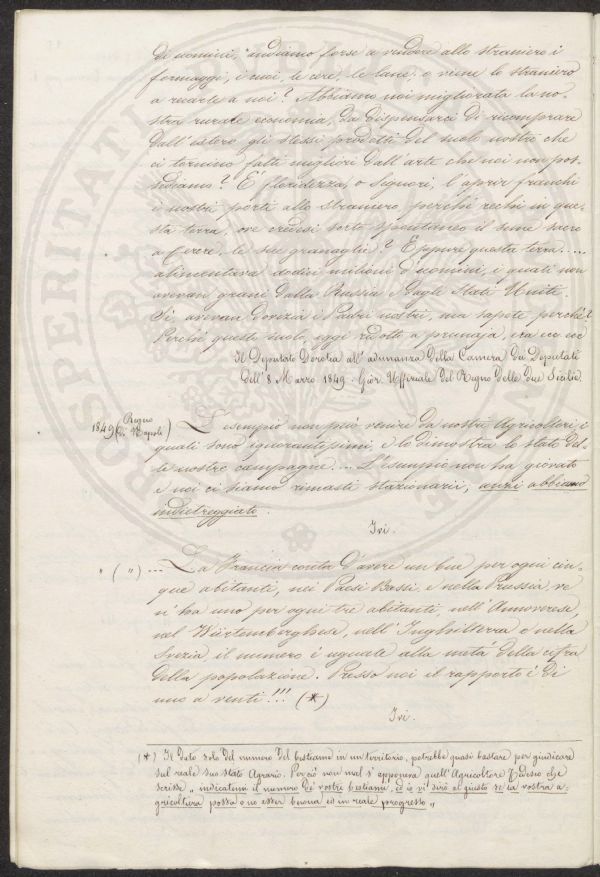 di uomini, "andiamo forse a vendere allo straniero i
formaggi, i cuoi, le cere, le lane; o viene lo straniero
a recarle a noi? Abbiamo noi migliorata la no-
stra rurale economia, da dispensarci di ricomprare
dall'estero gli stessi prodotti del suolo nostro che
ci tornino fatti migliori dall'arte che noi non pos-
sediamo? É floridezza, o Signori, l'aprir franchi
i nostri porti allo straniero perché rechi in que-
sta terra, ove credesi sorto spontaneo il seme sacro
a Cerere, le sue granaglie? Eppure questa terra.....
alimentava dodici milioni d'uomini, i quali non
avevan grani dalla Russia e dagli Stati Uniti.
Sì avevan dovizia i Padri nostri, ma sapete perché?
Perché questo suolo, oggi ridotto a prunaja, era ecc ecc
Il Deputato Dorotea all'adunanza della Camera dei Deputati
dell'8 Marzo 1849. Gior. Uffiziale del Regno delle due Sicilie.
1849 (Regno di Napoli) L'esempio non può venire da nostri Agricoltori, i
quali sono ignorantissimi, e lo dimostra lo stato del-
le nostre campagne... L'esempio non ha giovato
e noi ci siamo rimasti stazionarii, anzi abbiamo
indietreggiato.
Ivi.
" ( " ) ... La Francia conta d'avere un bue per ogni cin-
que abitanti, nei Paesi Bassi, e nella Prussia, ve
n'ha uno per ogni tre abitanti, nell'Annoverese,
nel Würtemberghese, nell'Inghilterra e nella
Svezia, il numero è uguale alla metà della cifra
della popolazione. Presso noi il rapporto è di
uno a venti!!! (*)
Ivi.
(*) Il dato solo del numero del bestiame in un territorio, potrebbe quasi bastare per giudicare
sul reale suo stato Agrario. Perciò non mal s'apponeva quell'Agricoltore Tedesco che
scrisse " indicatemi il numero de' vostri bestiami, ed io vi dirò al giusto se la vostra a-
gricoltura possa o no esser buona ed in reale progresso "
PROSPERITATI